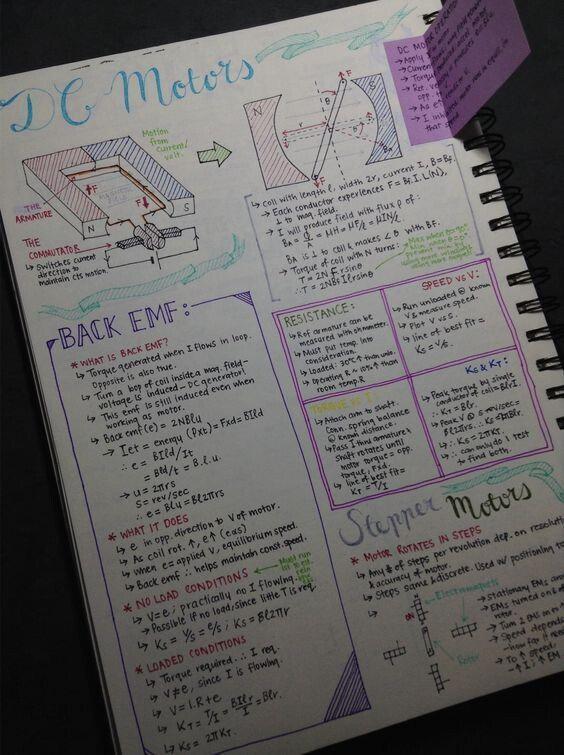 DC Motors
Motion
from
current/
volt.
N
S
F
F
F
θ
r
r
Ba
THE
ARMATURE
N
S
F
F
THE
COMMUTATOR
↳ Switches current
direction to
maintain cts motion.
→ Coil with length l, width 2r, current I, B = BF.
→ Each conductor experiences F = BF.I.L(N),
⊥ to mag. field.
→ I will produce field with flux φ of:
BA is ⊥ to coil & makes ∠ θ with BF.
→ Torque of coil with N turns:
T = 2N F r sinθ
∴ T = 2N BF I l r sinθ
DC MO
→ Apply
→ Current
→ Torque
→ Rot.
opp.
→ As e
→ I
that speed
BACK EMF:
* WHAT IS BACK EMF?
↳ Torque generated when I flows in loop.
Opposite is also true.
↳ Turn a loop of coil inside a mag. field -
voltage is induced - DC generator!
↳ This emf is still induced even when
working as motor.
↳ Back emf (e) = 2NBlu
→ Iet = energy (Pxt) = Fxd = BIld
∴ e = BIld/It
= Bld/t = B.l.u.
→ u = 2πrs
s = rev/sec
∴ e = Blu = Bl2πrs
* WHAT IT DOES
↳ e in opp. direction to V of motor.
→ As coil rot. ↑, e↑ (eαs)
↳ When e = applied V, equilibrium speed.
↳ Back emf ∴ helps maintain const. speed.
* NO LOAD CONDITIONS
Must run
↳ V=e; practically no I flowing.
→ Possible if no load, since little T is req.
↳ Ks = V/s = e/s; Ks = Bl2πr
* LOADED CONDITIONS
↳ Torque required ∴ I req.
↳ V≠e, since I is flowing.
↳ V = I.R + e
↳ KT = T/I = BIlr/I = Blr.
↳ Ks = 2πKT
RESISTANCE:
↳ R of armature can be
measured with ohmmeter.
↳ Must put temp. into
consideration.
↳ Loaded: 30°C↑ than unlo.
↳ Operating R ≈ 10%↑ than
room temp R
SPEED vs V:
↳ Run unloaded @ known
V & measure speed.
↳ Plot V vs S.
↳ line of best fit =
Ks = V/s.
TORQUE vs I:
↳ Attach arm to shaft.
Conn. spring balance
@ known distance.
↳ Pass I thru armature &
shaft rotates until
motor torque = opp.
torque, Fxd.
↳ line of best fit =
KT = T/I
Ks & KT:
↳ Peak torque by single
conductor of coil = BlrI.
∴ KT = Blr.
↳ Peak V @ s rev/sec =
Bl2πrs. ∴ Ks = 2πBlr.
↳ ∴ Ks = 2πKT.
↳ ∴ can only do 1 test
to find both.
Stepper Motors
* MOTOR ROTATES IN STEPS
↳ Any # of steps per revolution dep. on resolution
& accuracy of motor.
↳ Steps same & discrete. Used w/ positioning
Electromagnets
ON
Rotor
→ Stationary EMs
→ EMs turned on &
rotor.
→ Turn 2 EMs on
→ Speed depends
- how far
→ To ↑ speed
- ↑ I, ↑ EM